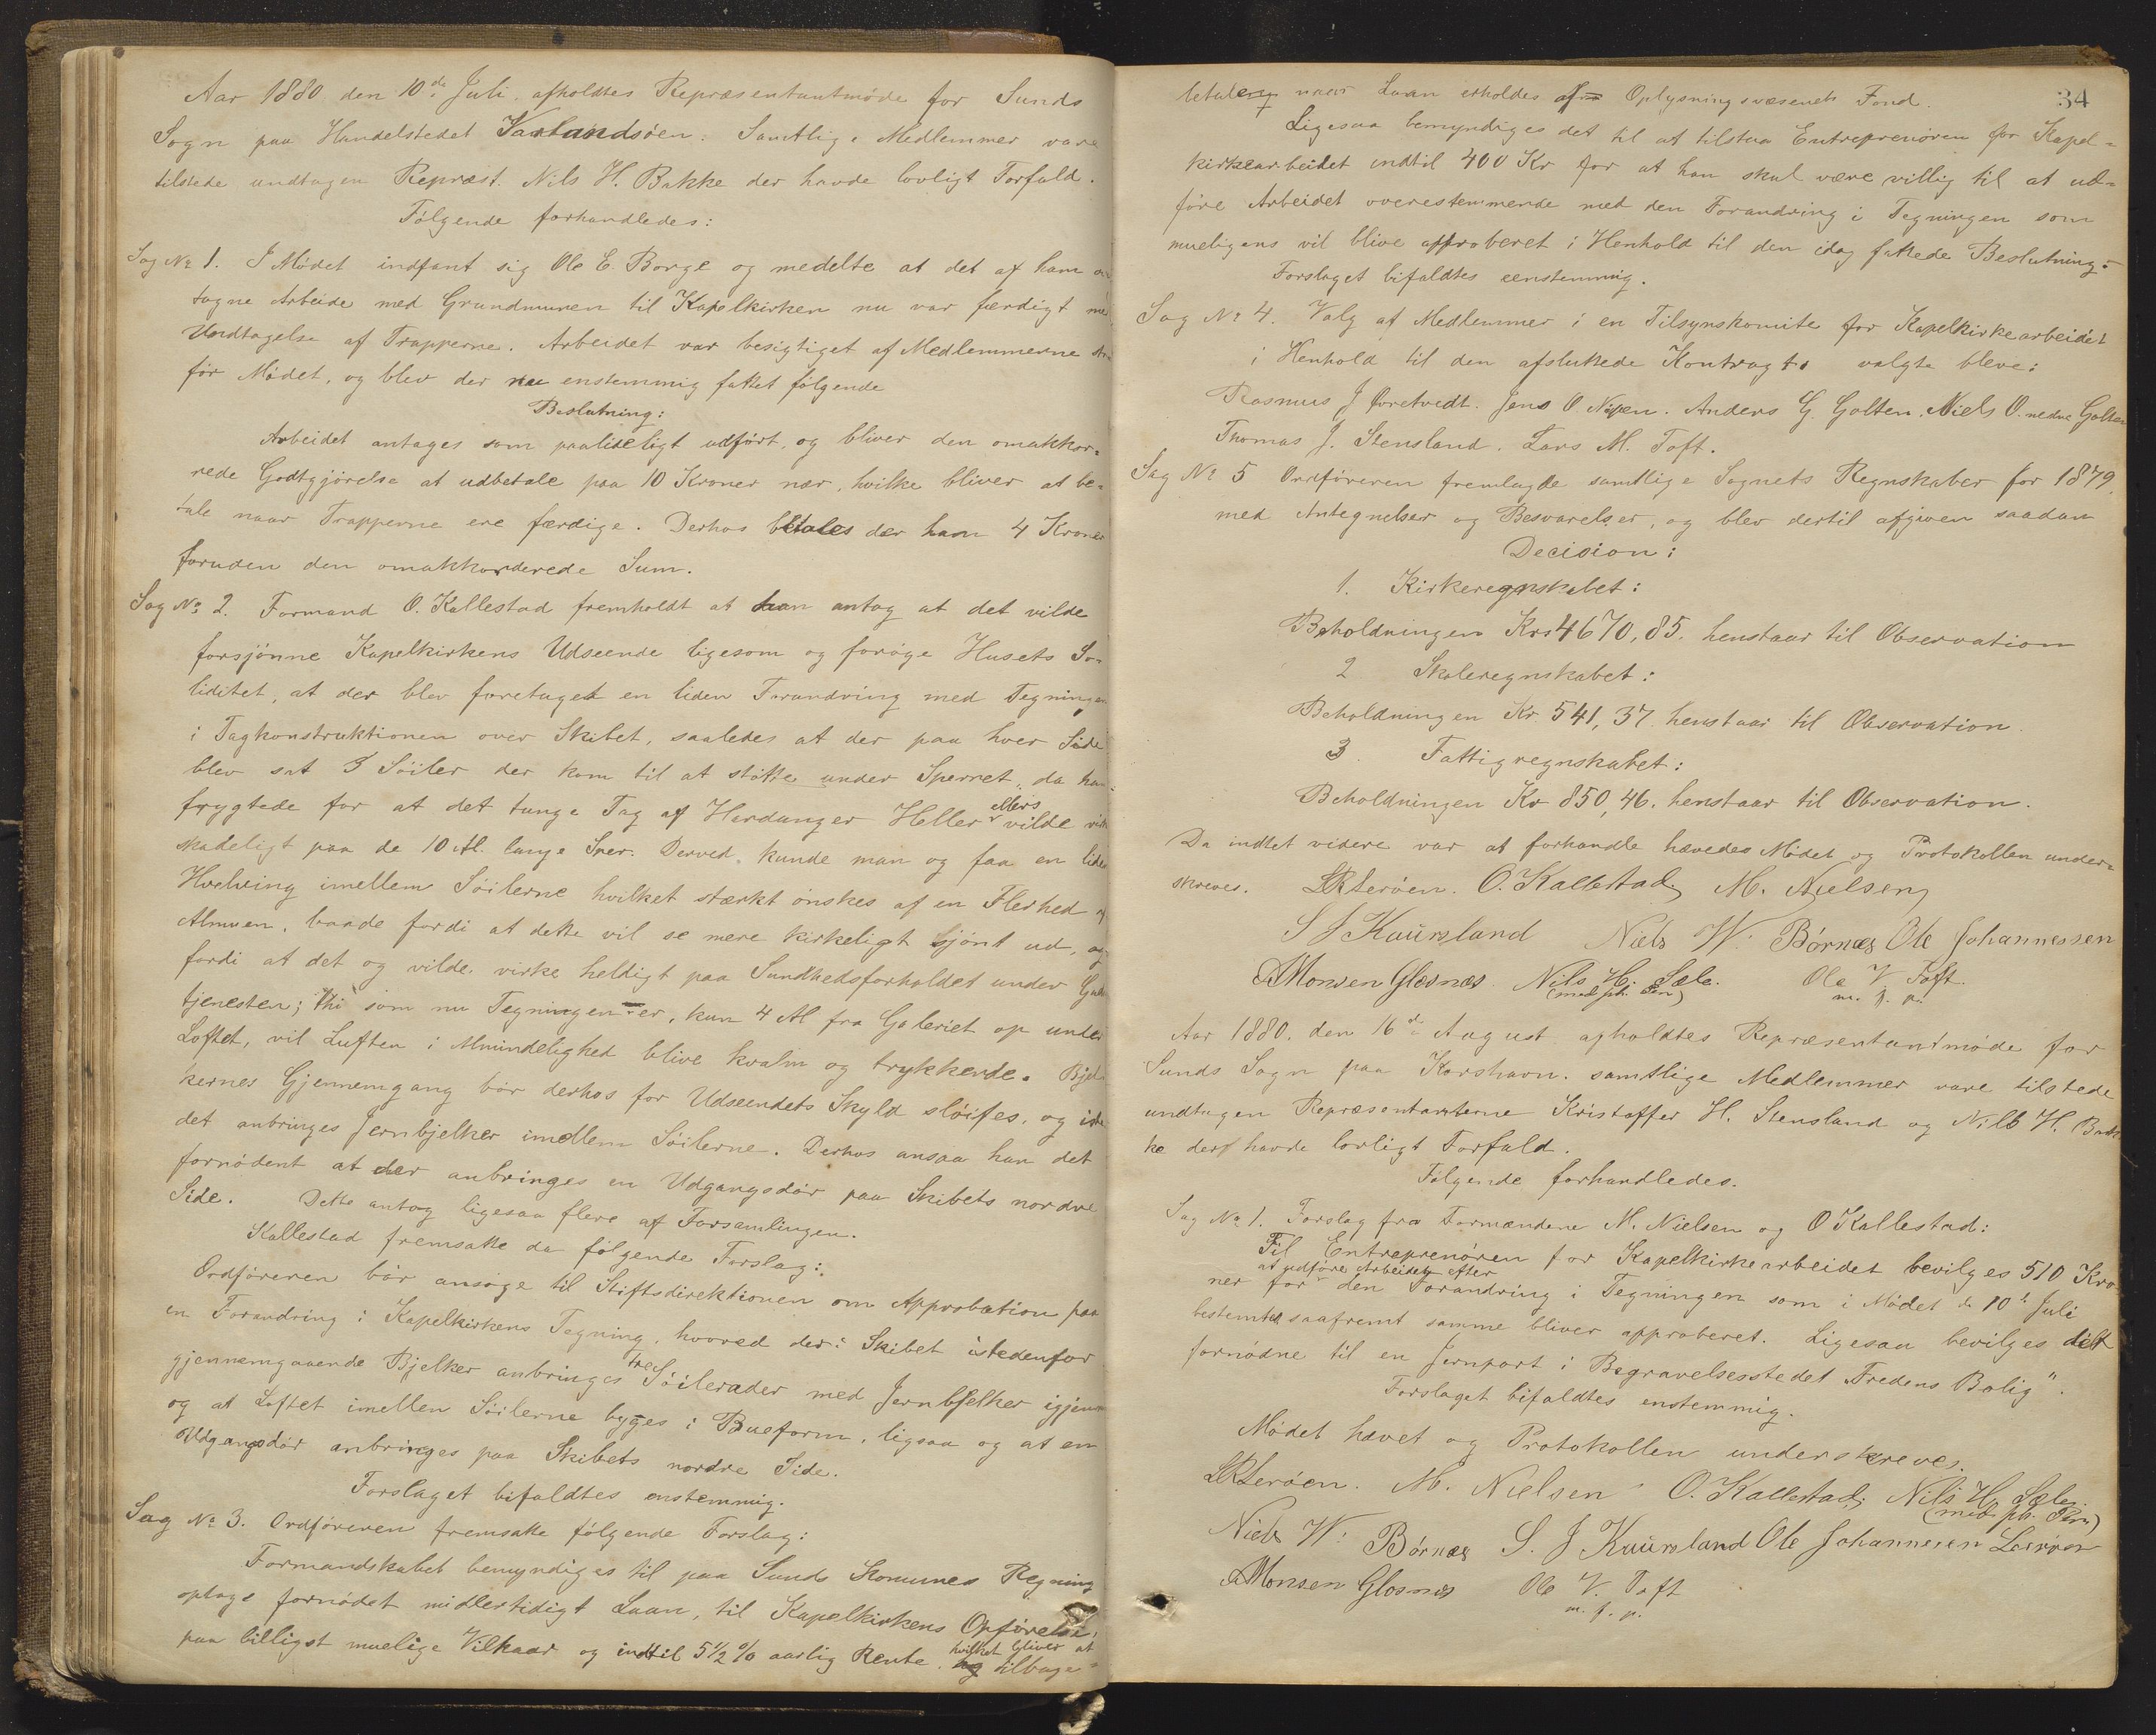 Aar 1880 den 10de Juli afholdtes Repræsentantmøde for Sunds
Sogn paa Handelstedet Kaarlandsöen. Samtlige Medlemmer vare
tilstede undtagen Repræst. Nils H. Bakke der havde lovligt Forfald.
Følgende forhandledes:
Sag No 1. I Mødet indfant sig Ole E. Borge og medelte at det af ham
tagne Arbeide med Grundmuren til Kapelkirken nu var færdigt med
Undtagelse af Trapperne. Arbeidet var besigtiget af Medlemmerne
før Mødet, og blev der nu enstemmig fattet følgende
Beslutning:
Arbeidet antages som paalideligt udført, og bliver den omakkor=
rede Godtgjørelse at udbetale paa 10 Kroner nær, hvilke bliver at be=
tale naar Trapperne ere færdige. Derhos betales der ham 4 Kroner
foruden den omakkorderede Sum.
Sag No 2. Formand O. Kallestad fremholdt at han antog at det vilde
forsjønne Kapelkirkens Udseende ligesom og forøge Husets So=
liditet, at der blev foretaget en liden Forandring med Tegningen
i Tagkonstruktionen over Skibet, saaledes at der paa hver Side
blev sat 3 Söiler der kom til at støtte under Sperret, da han
frygtede for at det tunge Tag af Hardanger Heller ellers vilde virke
skadeligt paa de 10 Al. lange Sper. Derved kunde man og faa en liden
Hvelving imellem Söilerne hvilket stærkt ønskes af en Flerhed af
Almuen, baade fordi at dette vil se mere kirkeligt sjönt ud, og
fordi at det og vilde virke heldigt paa Sundhedsforholdet under Guds
tjenesten; thi som nu Tegningen er, kun 4 Al fra Galeriet op under
Loftet, vil Luften i Almindelighed blive kvalm og trykkende. Bjel=
kernes Gjennemgang bör derhos for Udseendets Skyld slöifes, og iste
det anbringes Jernbjelker imellem Söilerne. Derhos ansaa han det
fornødent at der anbringes en Udgangsdør paa Skibets nordre
Side. Dette antog ligesaa flere af Forsamlingen.
Kallestad fremsatte da følgende Forslag:
Ordføreren bör ansøge til Stiftsdirektionen om Approbation paa
en Forandring i Kapelkirkens Tegning, hvorved der i Skibet istedenfor
gjennemgaaende Bjelker anbringes tre Söilerader med Jernbjelker igjennem
og at Loftet imellen Söilerne bygges i Bueform, ligsaa og at en
Udgangsdör anbringes paa Skibets nordre Side.
Forslaget bifaldtes enstemmig.
Sag No 3. Ordføreren fremsatte følgende Forslag:
Formandskabet bemyndiges til paa Sunds Komunes Regning
optage fornødet midlertidigt Laan, til Kapelkirkens Opførelse,
paa billigst muelige Vilkaar og indtil 5 1/2 % aarlig Rente, hvilket bliver at tilbage=
34
betale naar Laan erholdes af Oplysningsvæsenets Fond.
Ligesaa bemyndiges det til at tilstaa Entreprenøren for Kapel=
kirkearbeidet indtil 400 Kr for at han skul være villig til at ud=
føre Arbeidet overestemmende med den Forandring i Tegningen som
mueligens vil blive approberet i Henhold til den idag fattede Beslutning.
Forslaget bifaldtes eenstemmig.
Sag No 4. Valg af Medlemmer i en Tilsynskomite for Kapelkirkearbeidet
i Henhold til den afsluttede Kontragt. valgte bleve:
Rasmus J Toretvedt. Jens O. Nipen. Anders G. Golten. Niels O. nedre Golten
Thomas J. Stensland. Lars M. Toft.
Sag No 5 Ordføreren fremlagde samtlige Sognets Regnskaber for 1879,
med Antegnelser og Besvarelser, og blev dertil afgiven saadan
Decision:
1. Kirkeregnskabet:
Beholdningen Krs 4670,85. henstaar til Observation
2 Skoleregnskabet:
Beholdningen Kr 541,37 henstaar til Observation.
3 Fattigregnskabet:
Beholdningen Kr 850,46. henstaar til Observation.
Da indtet videre var at forhandle hævedes Mødet og Protokollen under=
skreves. LR Leröen. O. Kallestad M. Nielsen
S J Kaursland Niels W. Börnæs Ole Johannessen
A Monsen Glesnæs Nils H. Sæle. Ole V Toft.
(med ph. Pen) m. f. p.
Aar 1880. den 16de August afholdtes Repræsentantmøde for
Sunds Sogn paa Korshavn. samtlige Medlemmer vare tilstede
undtagen Repræsentanterne Kristoffer H. Stensland og Nils H. Bak
ke der havde lovligt Forfald.
Følgende forhandledes.
Sag No 1. Forslag fra Formændene M. Nielsen og O Kallestad:
Til Entreprenøren for Kapelkirkearbeidet bevilges 510 Kro
ner for at udføre Arbeidet efter den Forandring i Tegningen som i Mødet d. 10de Juli
bestemtes saafremt samme bliver approberet. Ligesaa bevilges det
fornødne til en Jernport i Begravelsesstedet "Fredens Bolig".
Forslaget bifaldtes enstemmig.
Mødet hævet og Protokollen underskreves.
LR Leröen. M. Nielsen O. Kallestad Nils H. Sæle
(med ph. Pen)
Niels W. Börnæs S. J Kaursland Ole Johannesen Leeröen
A Monsen Glesnæs Ole V. Toft
m. f. p.